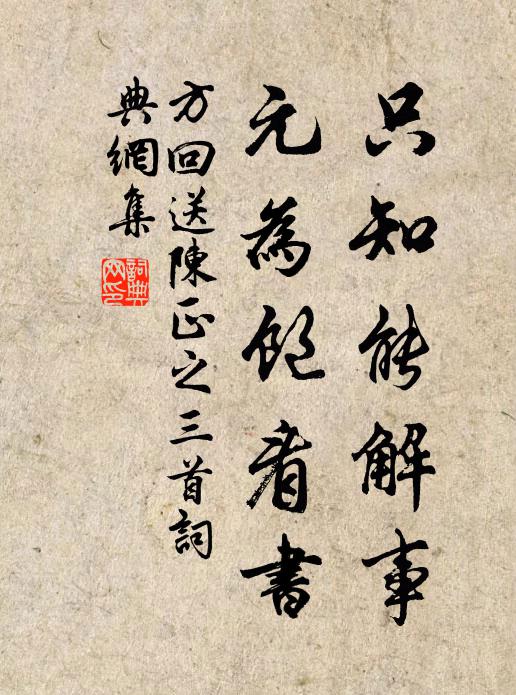 只知能解事
元為飽看書
方回送陳正之三首詞
典網集
詞典網印